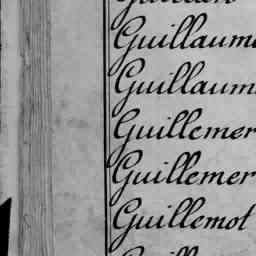 Guillaum
Guillaum
Guillemer
Guillemer
Guillemot